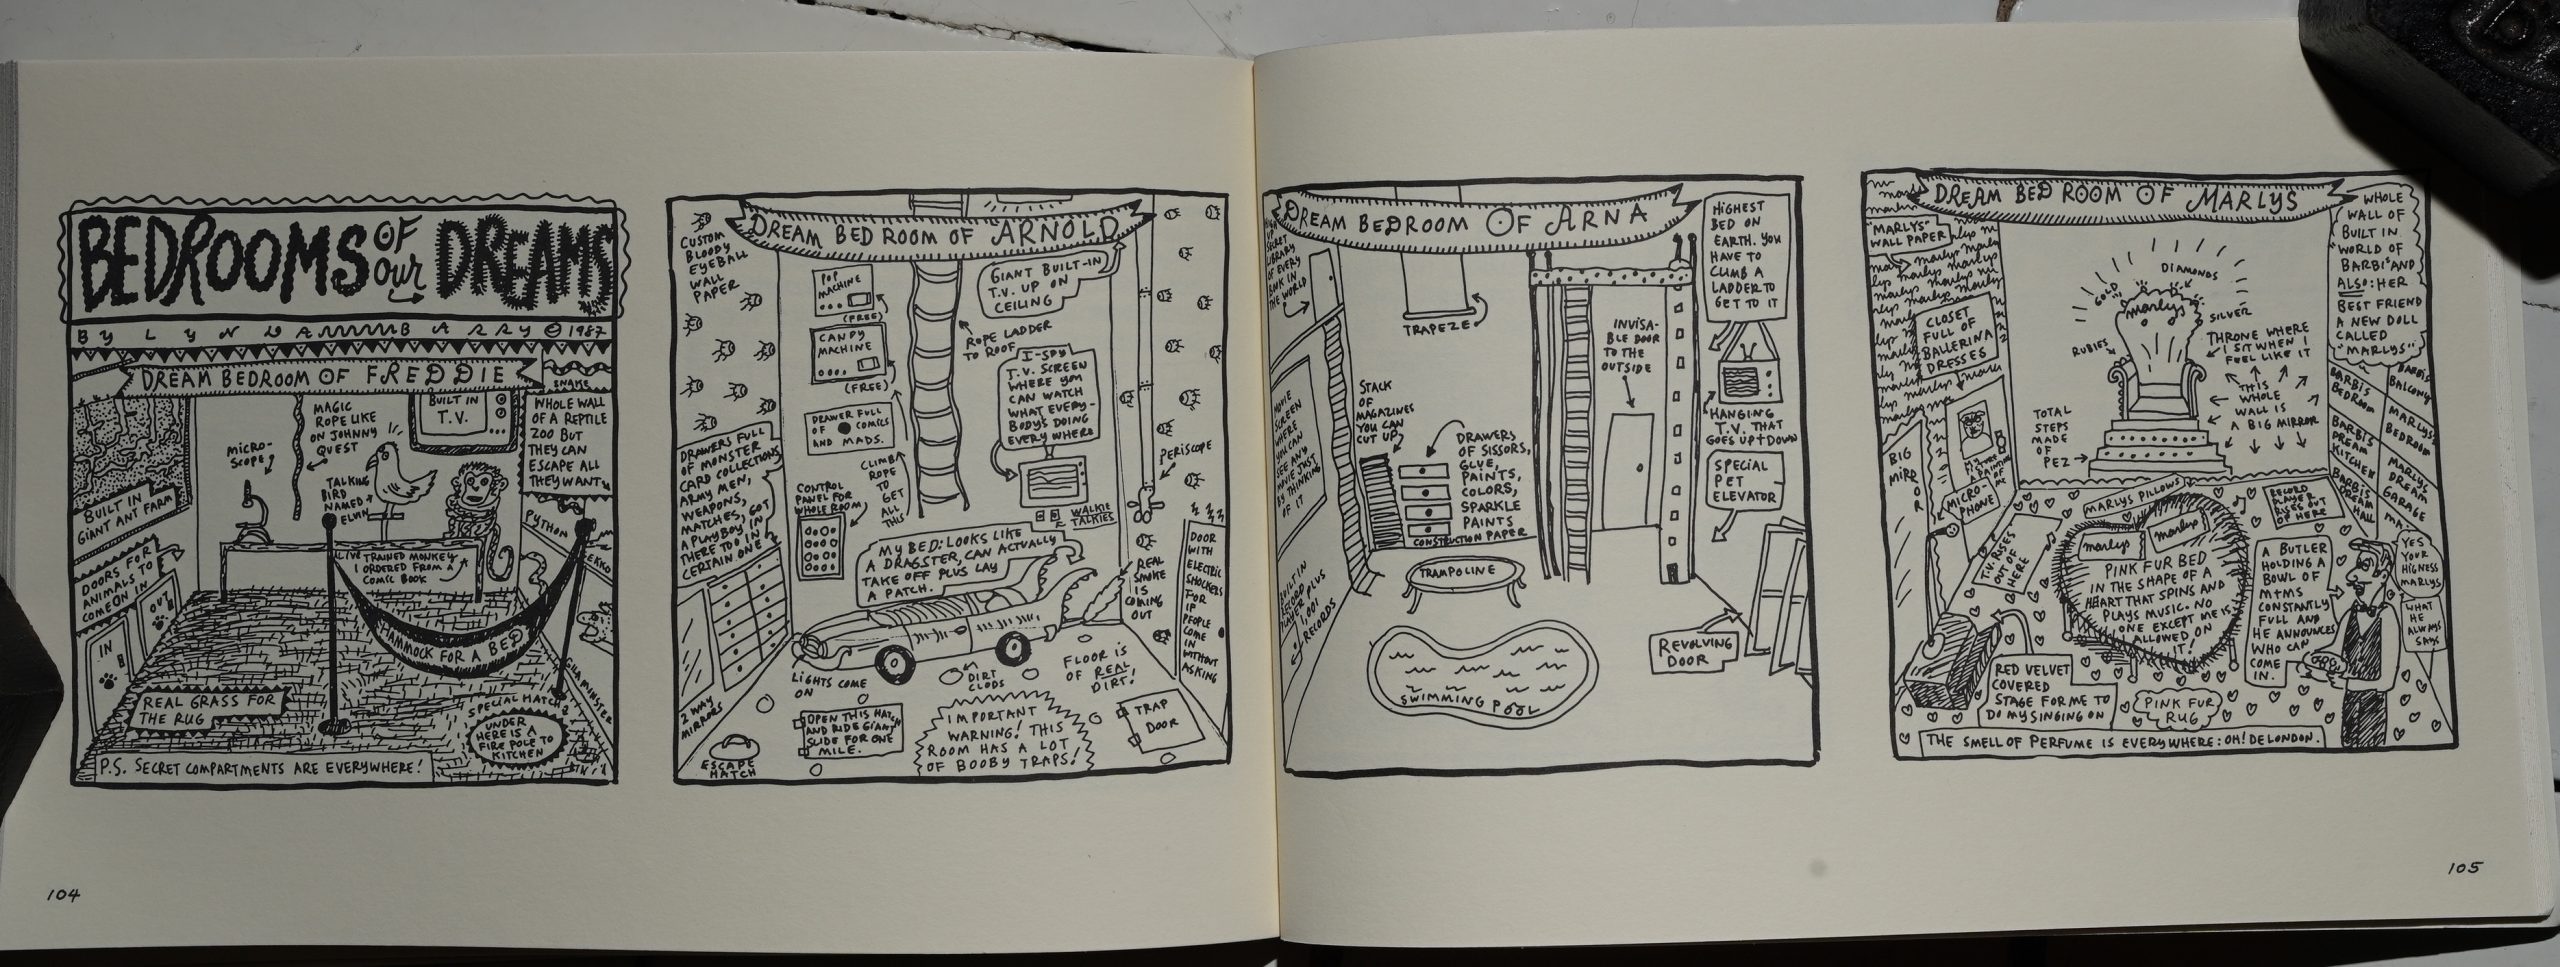 BEDROOMS OF our DREAMS
BY LYNDA BARRY © 1987
DREAM BEDROOM OF FREDDIE
SNAKE
BUILT IN
GIANT ANT FARM
MICRO-
SCOPE
MAGIC
ROPE LIKE
ON JOHNNY
QUEST
BUILT IN
T.V.
WHOLE WALL
OF A REPTILE
ZOO BUT
THEY CAN
ESCAPE ALL
THEY WANT
TALKING
BIRD
NAMED
ELVIN
PYTHON
GEKKO
DOORS FOR
ANIMALS TO
COME ON IN
IN
OUT
LIVE TRAINED MONKEY
I ORDERED FROM A
COMIC BOOK
HAMMOCK FOR A BED
REAL GRASS FOR
THE RUG
SPECIAL HATCH
UNDER
HERE IS A
FIRE POLE TO
KITCHEN
P.S. SECRET COMPARTMENTS ARE EVERYWHERE!
104
DREAM BED ROOM OF ARNOLD
CUSTOM
BLOODY
EYEBALL
WALL
PAPER
POP
MACHINE
(FREE)
CANDY
MACHINE
(FREE)
DRAWER FULL
OF COMICS
AND MADS.
CLIMB
ROPE
TO
GET
ALL
THIS
ROPE LADDER
TO ROOF
GIANT BUILT-IN
T.V. UP ON
CEILING
I-SPY
T.V. SCREEN
WHERE YOU
CAN WATCH
WHAT EVERY-
BODY'S DOING
EVERYWHERE
WALKIE
TALKIES
PERISCOPE
DRAWERS FULL
OF MONSTER
CARD COLLECTIONS,
ARMY MEN,
WEAPONS,
MATCHES, GOT
A PLAYBOY IN
THERE TOO IN
CERTAIN ONE
CONTROL
PANEL FOR
WHOLE ROOM
MY BED: LOOKS LIKE
A DRAGSTER, CAN ACTUALLY
TAKE OFF PLUS LAY
A PATCH.
REAL
SMOKE
IS
COMING
OUT
DOOR
WITH
ELECTRIC
SHOCKERS
FOR
IF
PEOPLE
COME
IN
WITHOUT
ASKING
2 WAY
MIRRORS
LIGHTS COME
ON
DIRT
CLODS
FLOOR IS
OF REAL
DIRT!
ESCAPE
HATCH
OPEN THIS HATCH
AND RIDE GIANT
SLIDE FOR ONE
MILE.
IMPORTANT
WARNING! THIS
ROOM HAS A LOT
OF BOOBY TRAPS!
TRAP
DOOR
DREAM BEDROOM OF ARNA
SECRET
LIBRARY
OF EVERY
BOOK IN
THE WORLD
TRAPEZE
HIGHEST
BED ON
EARTH. YOU
HAVE TO
CLIMB A
LADDER TO
GET TO IT
INVISA-
BLE DOOR
TO THE
OUTSIDE
MOVIE
SCREEN
WHERE
YOU CAN
SEE ANY
MOVIE JUST
BY THINKING
OF IT
STACK
OF
MAGAZINES
YOU CAN
CUT UP
DRAWERS
OF SISSORS,
GLUE,
PAINTS,
COLORS,
SPARKLE
PAINTS
CONSTRUCTION PAPER
HANGING
T.V. THAT
GOES UP+DOWN
SPECIAL
PET
ELEVATOR
BUILT IN
RECORD
PLAYER PLUS
1,001
RECORDS
TRAMPOLINE
SWIMMING POOL
REVOLVING
DOOR
DREAM BED ROOM OF MARLYS
"MARLYS"
WALL PAPER
CLOSET
FULL OF
BALLERINA
DRESSES
BIG
MIRROR
MICRO-
PHONE
GOLD
DIAMONDS
marlys
SILVER
RUBIES
THRONE WHERE
I SIT WHEN I
FEEL LIKE IT
THIS
WHOLE
WALL IS
A BIG MIRROR
TOTAL
STEPS
MADE
OF
PEZ
WHOLE
WALL OF
BUILT IN
WORLD OF
BARBI'S AND
ALSO: HER
BEST FRIEND
A NEW DOLL
CALLED
"MARLYS"
BARBIS
BEDROOM
BARBIS
BALCONY
BARBIS
DREAM
KITCHEN
MARLYS
BEDROOM
BARBIS
DREAM
HALL
MARLYS
DREAM
GARAGE
T.V. RISES
OUT OF
HERE
MARLYS PILLOWS
marlys
marlys
RECORD
PLAYER
RISES OUT
OF HERE
PINK FUR BED
IN THE SHAPE OF A
HEART THAT SPINS AND
PLAYS MUSIC. NO
ONE EXCEPT ME IS
ALLOWED ON
IT!
A BUTLER
HOLDING A
BOWL OF
M+MS
CONSTANTLY
FULL AND
HE ANNOUNCES
WHO CAN
COME
IN.
YES
YOUR
HIGNESS
MARLYS
WHAT
HE
ALWAYS
SAYS
RED VELVET
COVERED
STAGE FOR ME TO
DO MY SINGING ON
PINK FUR
RUG
THE SMELL OF PERFUME IS EVERYWHERE: OH! DE LONDON.
105